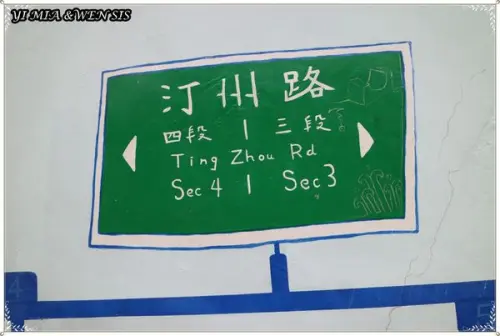 YI MIA & WEN SIS
汀州路
四段 | 三段
Ting Zhou Rd
Sec 4 | Sec 3